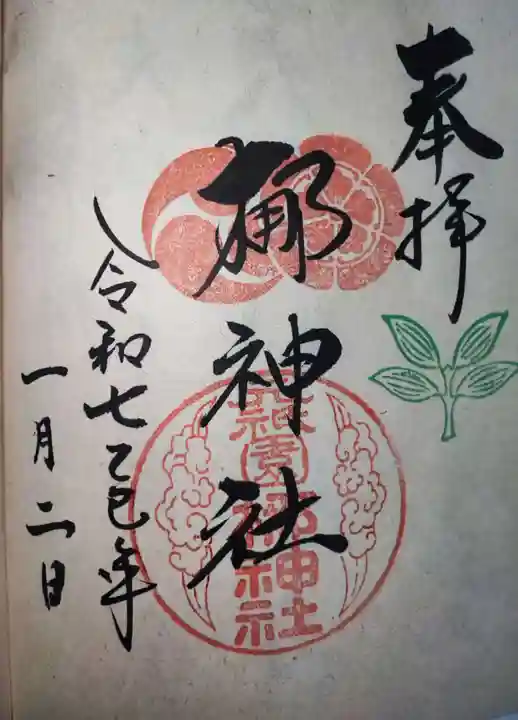 奉拝
梛神社
祇園梛神社
令和七乙巳年
一月二日